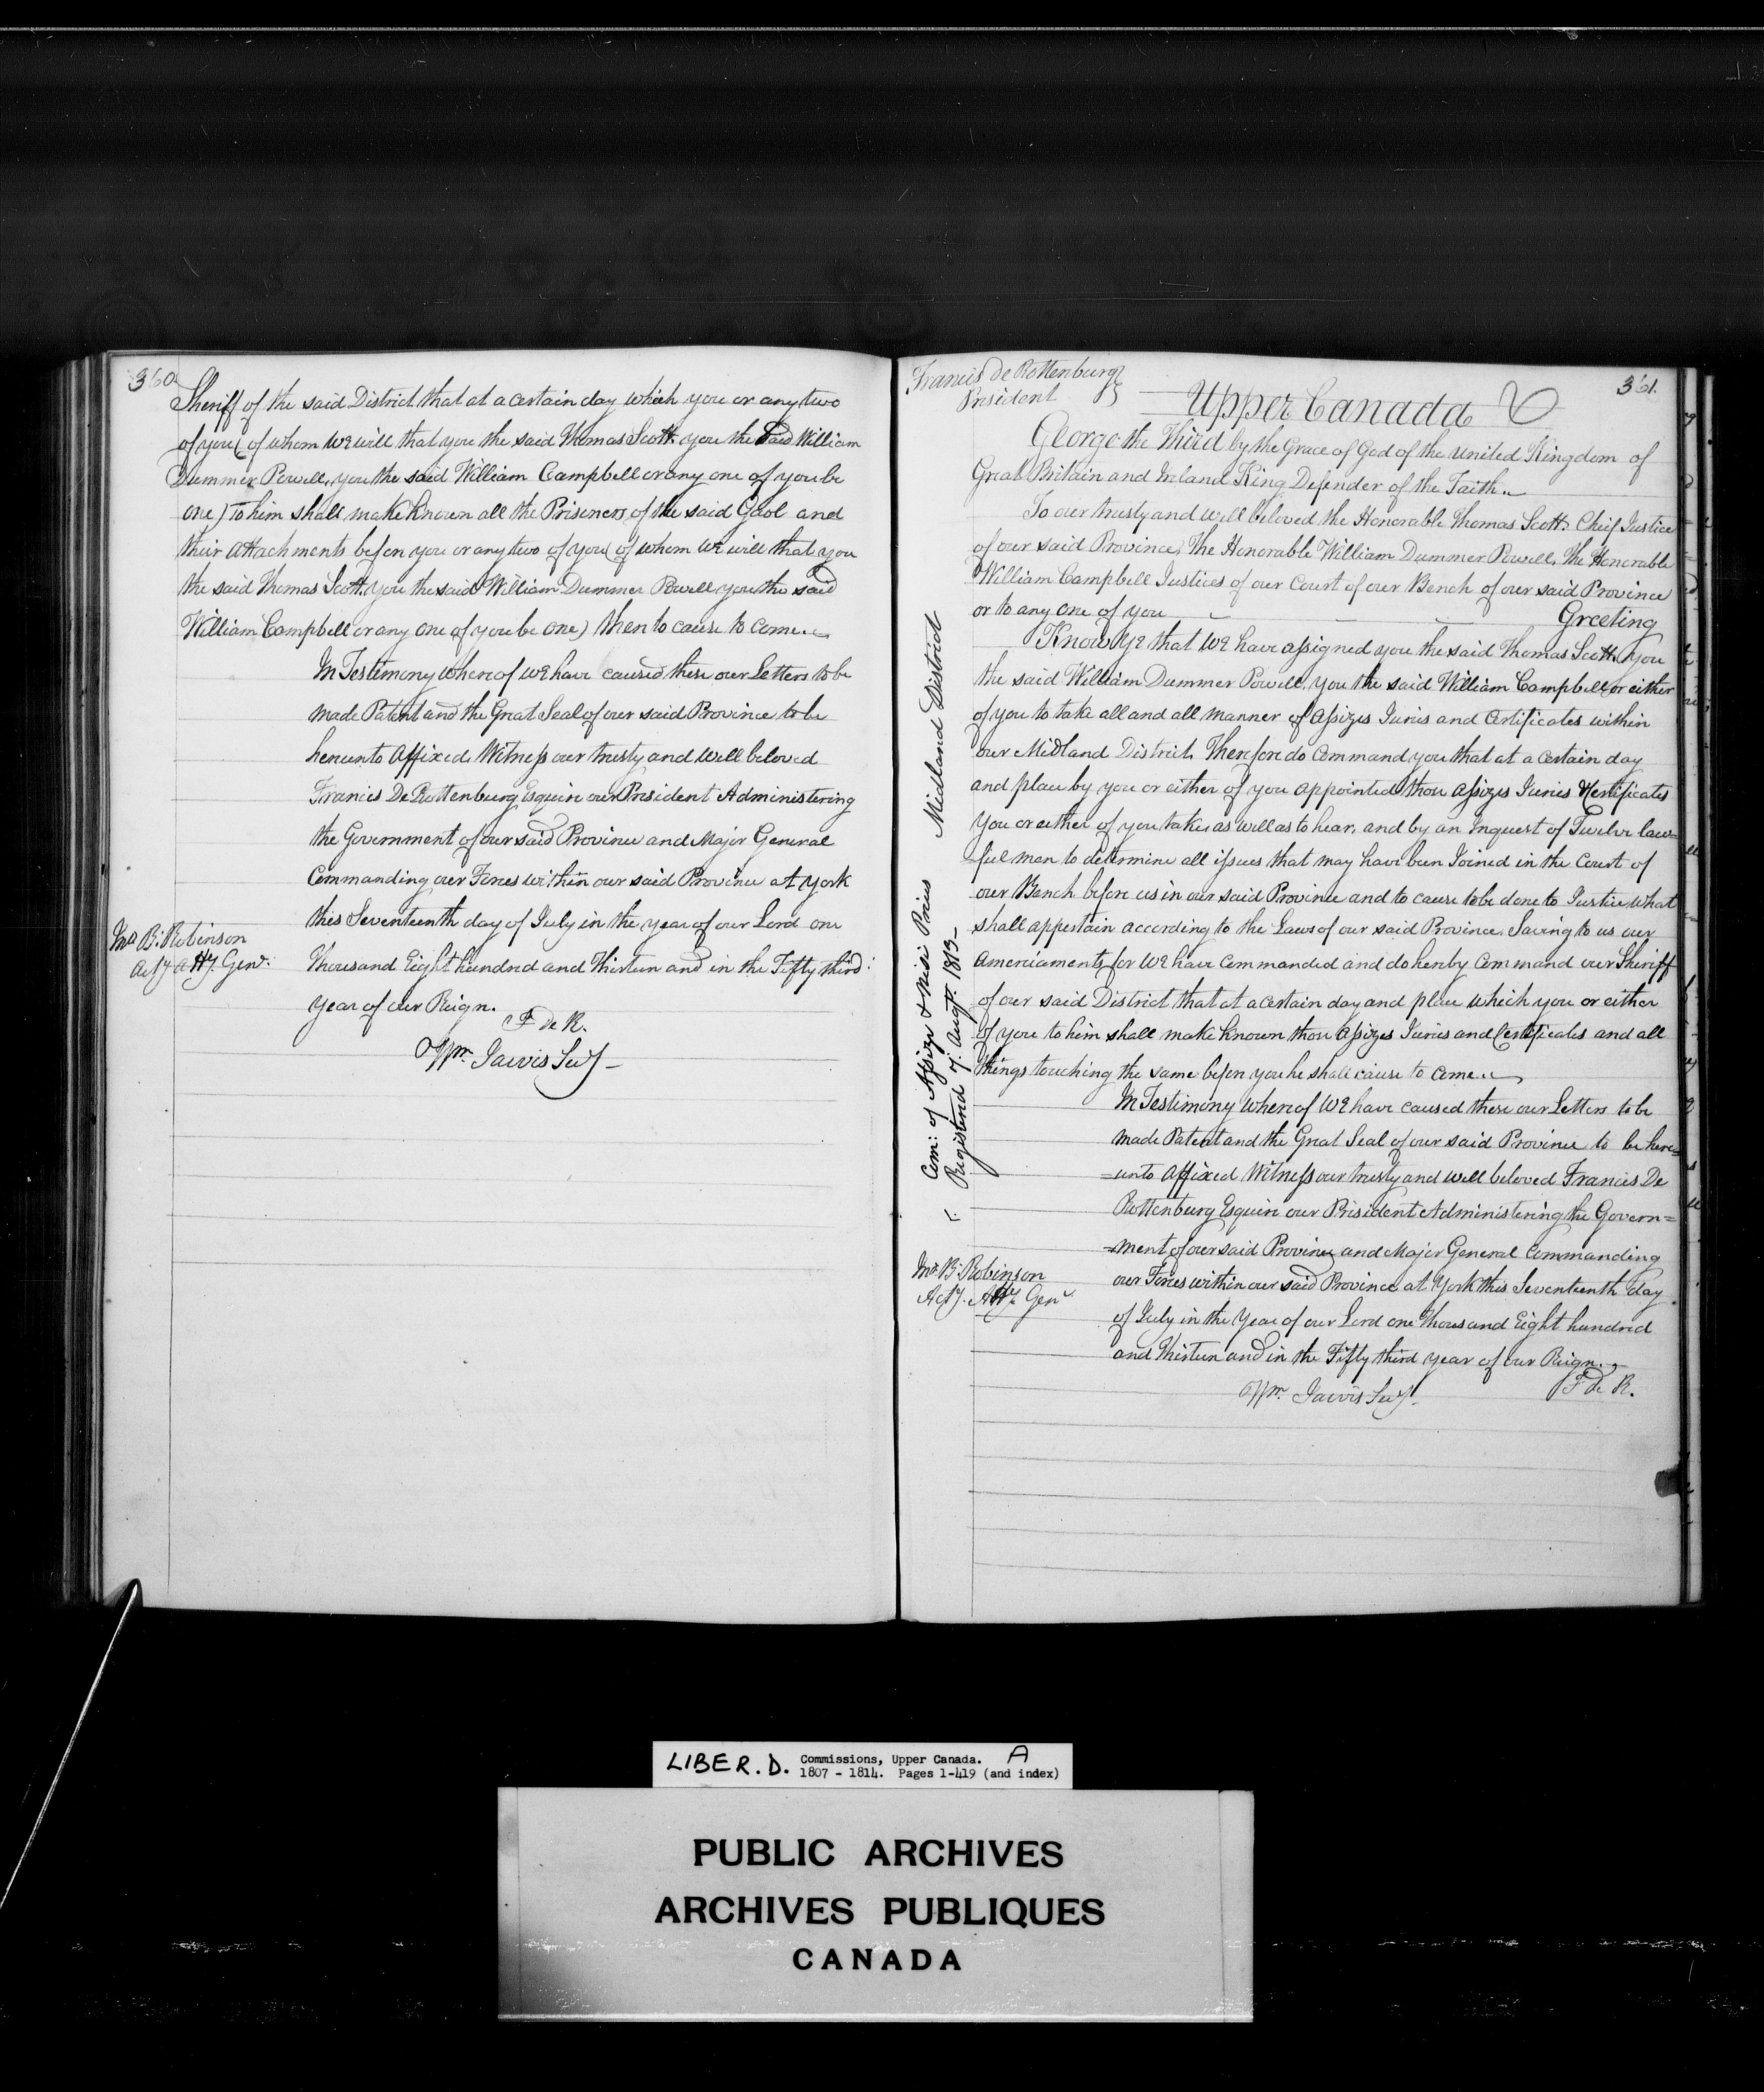 360
Sheriff of the said District that at a certain day which you or any two
of you (of whom We will that you the said Thomas Scott, you the said William
Dummer Powell, you the said William Campbell or any one of you be
one) to him shall make known all the Prisoners of the said Gaol and
their attachments before you or any two of you (of whom We will that you
the said Thomas Scott, you the said William Dummer Powell you the said
William Campbell or any one of you be one) then to cause to come.
In Testimony whereof We have caused these our Letters to be
made Patent and the Great Seal of our said Province to be
hereunto Affixed Witness our trusty and well beloved
Francis De Rottenburg Esquire our President Administering
the Government of our said Province and Major General
Commanding our Forces within our said Province at York
this Seventeenth day of July in the year of our Lord one
B. Robinson
Actg Atty. Genl.
Thousand Eight hundred and Thirteen and in the Fifty third
year of our Reign.
F de R.
Wm. Jarvis Secy
Francis de Rottenburg
President
Upper Canada
361.
George the Third by the Grace of God of the United Kingdom of
Great Britain and Ireland King Defender of the Faith
To our trusty and well beloved the Honorable Thomas Scott Chief Justice
of our said Province, The Honorable William Dummer Powell, The Honorable
William Campbell Justices of our Court of our Bench of our said Province
or to any one of you Greeting
Know Ye that We have assigned you the said Thomas Scott, you
the said William Dummer Powell, you the said William Campbell or either
of you to take all and all manner of Assizes Juries and Certificates within
our Midland District Therefore do Command you that at a certain day
and place by you or either of you appointed those Assizes Juries & Certificates
you or either of you take as well as to hear, and by an Inquest of Twelve law=
=ful men to determine all issues that may have been Joined in the Court of
our Bench before us in our said Province and to cause to be done to Justice what
shall appertain according to the Laws of our said Province. Saving to us our
Amerciaments, for We have Commanded and do hereby Command our Sheriff
of our said District that at a certain day and place which you or either
of you to him shall make known those Assizes Juries and Certificates and all
things touching the same before you he shall cause to come.
Com: of Assize & Nisi Prius Midland District
Registered 7. Augt. 1813
In Testimony whereof We have caused these our Letters to be
made Patent and the Great Seal of our said Province to be here=
=unto affixed Witness our trusty and well beloved Francis De
Rottenburg Esquire our President Administering the Govern=
=ment of our said Province and Major General Commanding
B. Robinson
Actg. Atty Genl
our Forces within our said Province at York this Seventeenth day
of July in the Year of our Lord one Thousand Eight hundred
and Thirteen and in the Fifty third year of our Reign.
Wm. Jarvis Secy F de R.
LIBER.D. Commissions, Upper Canada. A
1807 - 1814. Pages 1-419 (and index)
PUBLIC ARCHIVES
ARCHIVES PUBLIQUES
CANADA